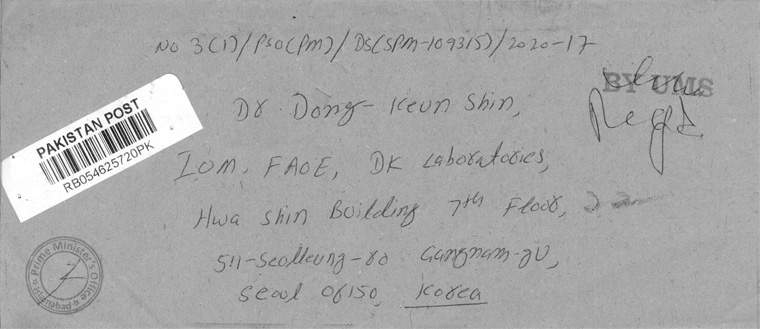 No 3(1)/PSO(PM)/DS(SPM-109315)/2020-17
BY UMS
Regd.
Dr Dong-Keun Shin,
PAKISTAN POST
RB054625720PK
IOM, FAOE, DK Laboratories,
Hwa Shin Building 7th Floor,
511-Seolleung-ro Gangnam-gu,
Seoul 06150, Korea
Prime Minister's Office